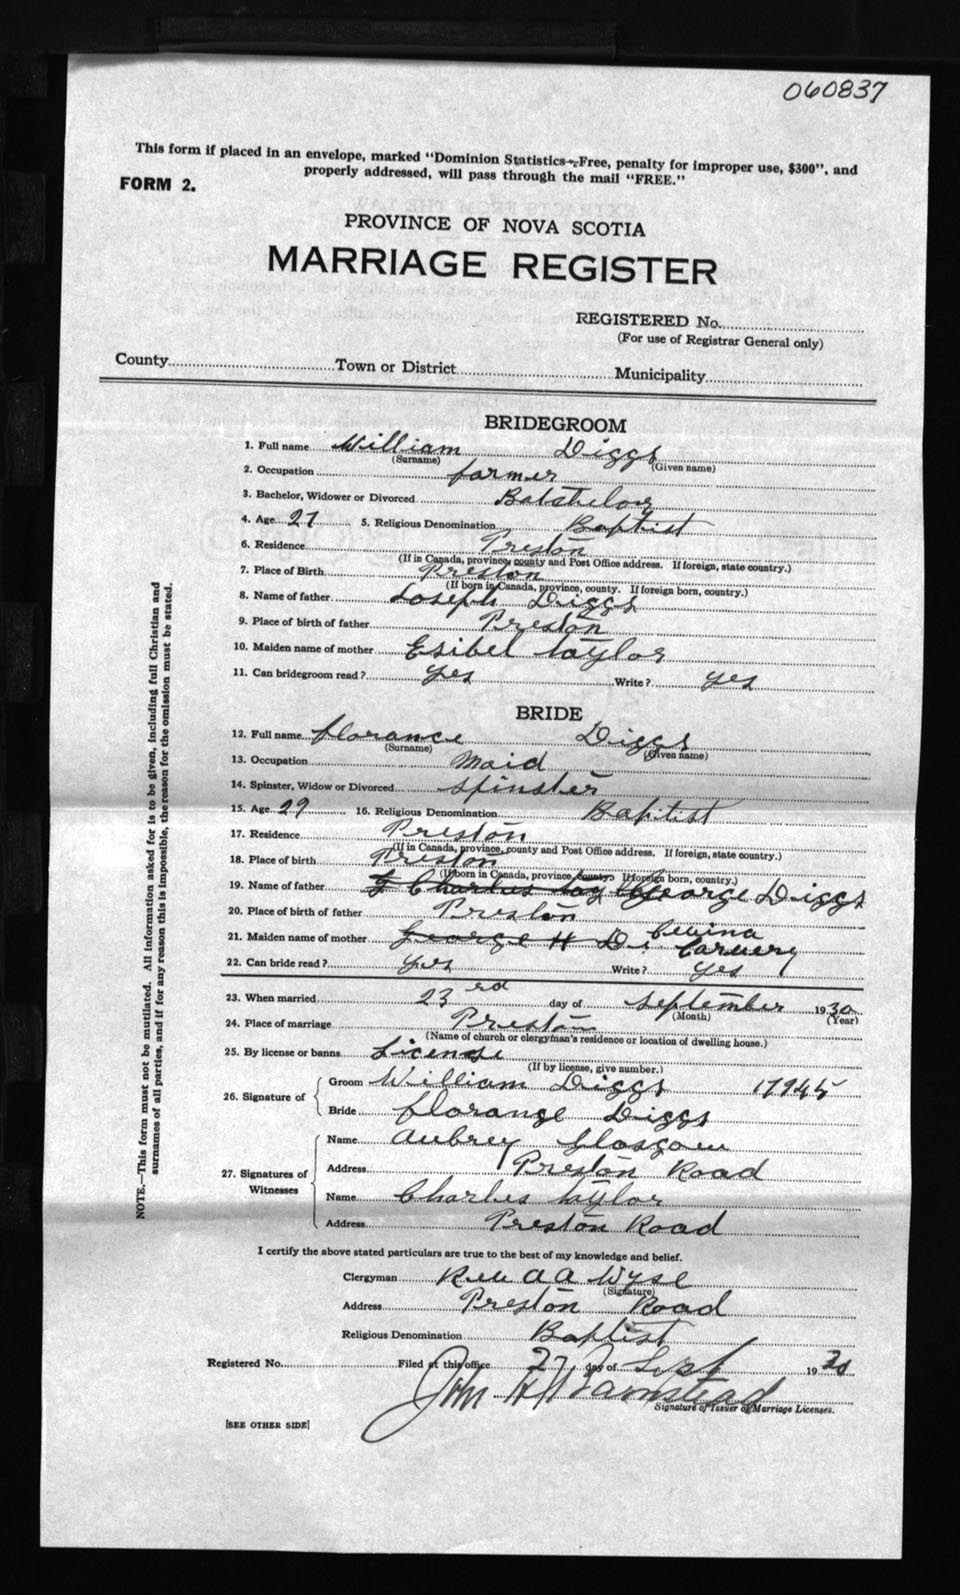 060837
This form if placed in an envelope, marked "Dominion Statistics—Free, penalty for improper use, $300", and
properly addressed, will pass through the mail "FREE."
FORM 2.
PROVINCE OF NOVA SCOTIA
MARRIAGE REGISTER
REGISTERED No.
(For use of Registrar General only)
County Town or District Municipality
BRIDEGROOM
1. Full name William Diggs
(Surname) (Given name)
2. Occupation farmer
3. Bachelor, Widower or Divorced Batchelor
4. Age 27 5. Religious Denomination Baptist
6. Residence Preston
(If in Canada, province, county and Post Office address. If foreign, state country.)
7. Place of Birth Preston
(If born in Canada, province, county. If foreign born, country.)
8. Name of father Joseph Diggs
9. Place of birth of father Preston
10. Maiden name of mother Esibel taylor
11. Can bridegroom read? yes Write? yes
BRIDE
12. Full name florance Diggs
(Surname) (Given name)
13. Occupation Maid
14. Spinster, Widow or Divorced spinster
15. Age 29 16. Religious Denomination Baptist
17. Residence Preston
(If in Canada, province, county and Post Office address. If foreign, state country.)
18. Place of birth Preston
(If born in Canada, province county. If foreign born, country.)
19. Name of father Charles tay George Diggs
20. Place of birth of father Preston
21. Maiden name of mother George H Di Carvery
22. Can bride read? yes Write? yes
23. When married 23rd day of September 1930
(Month) (Year)
24. Place of marriage Preston
(Name of church or clergyman's residence or location of dwelling house.)
25. By license or banns License
(If by license, give number.)
26. Signature of Groom William Diggs 17945
Bride florange Diggs
27. Signatures of Witnesses Name Aubrey Glasgow
Address Preston Road
Name Charles taylor
Address Preston Road
I certify the above stated particulars are true to the best of my knowledge and belief.
Clergyman Rev A A Wyse
(Signature)
Address Preston Road
Religious Denomination Baptist
Registered No. Filed at this office 27 day of Sept 1930
John
Signature of Issuer of Marriage Licenses.
[SEE OTHER SIDE]
NOTE.—This form must not be mutilated. All information asked for is to be given, including full Christian and
surnames of all parties, and if for any reason this is impossible, the reason for the omission must be stated.